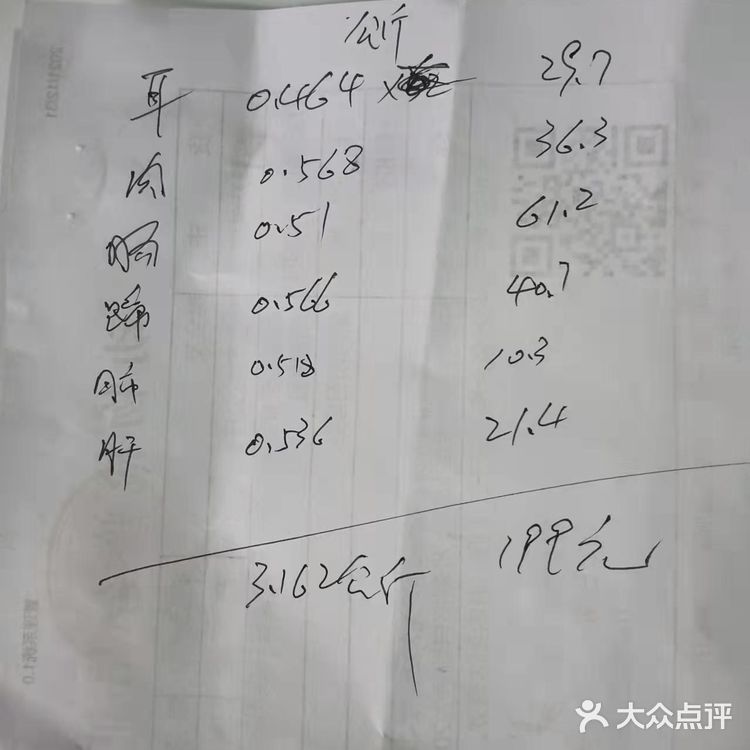 公斤
耳 0.464 x 29.7
肉 0.568 36.3
肠 0.51 61.2
蹄 0.566 40.7
肺 0.518 10.3
肝 0.536 21.4
3.162公斤 199元
大众点评